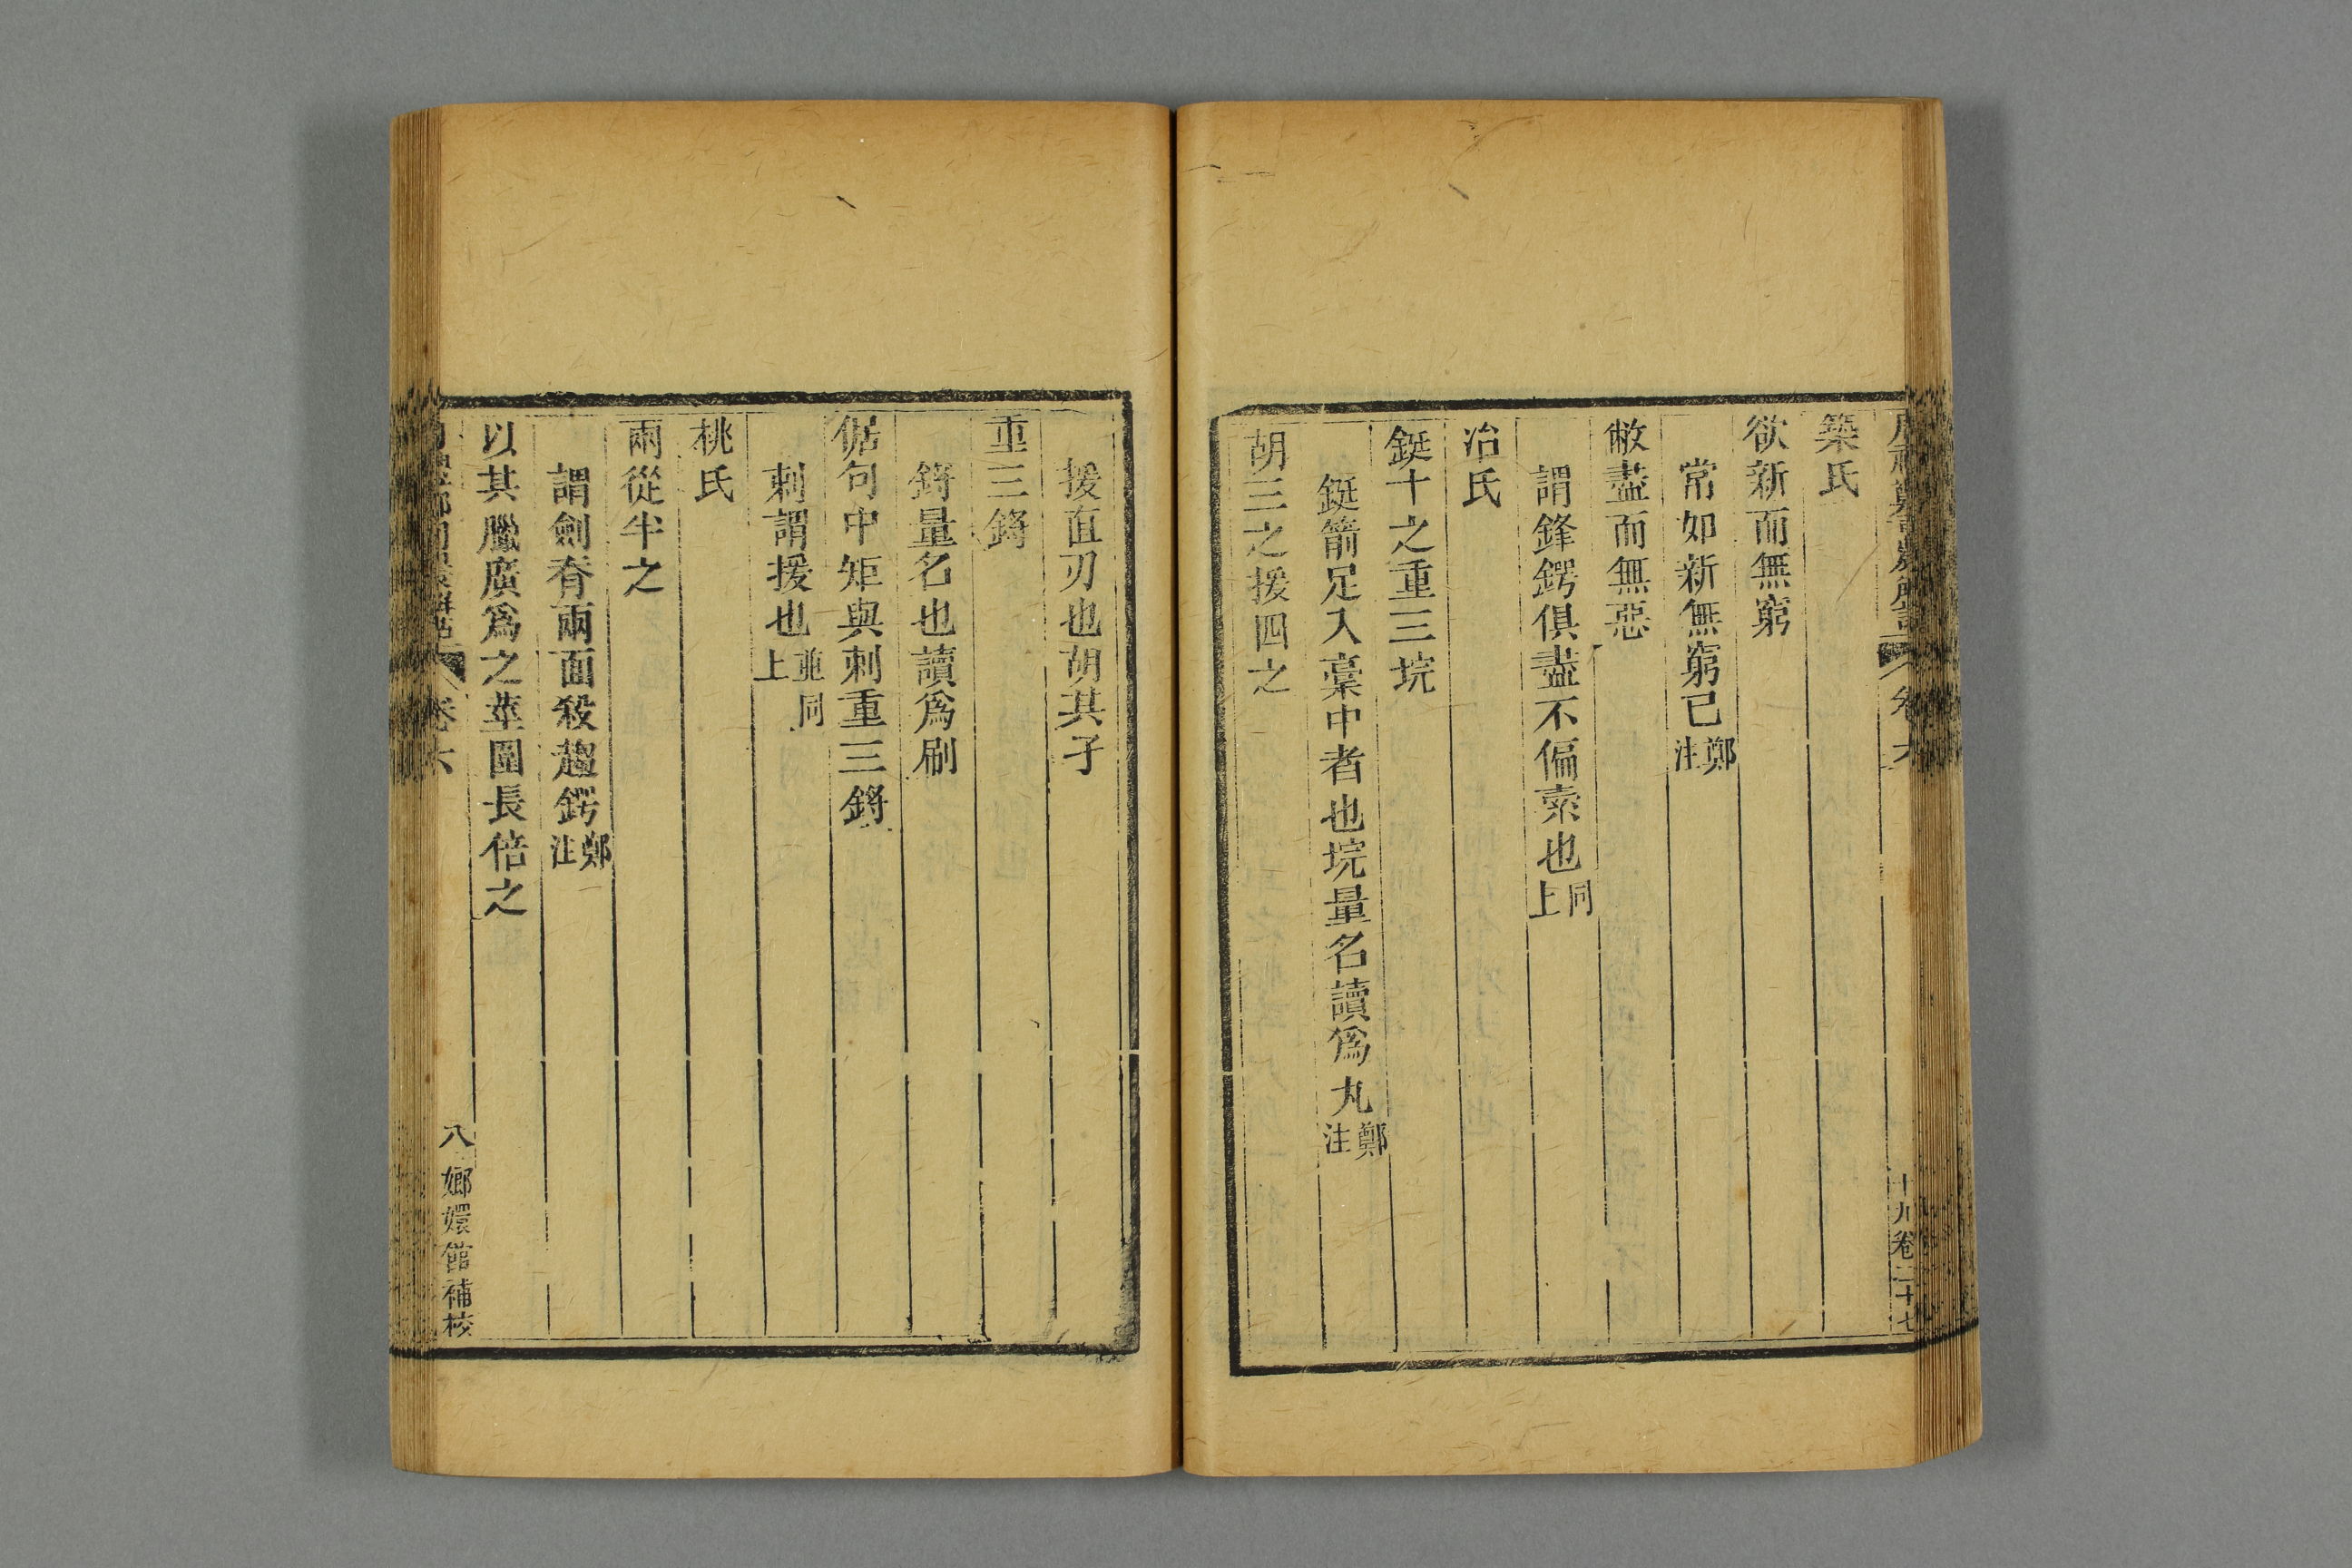 築氏
欲新而無窮
常如新無窮已鄭注
敝盡而無惡
謂鋒鍔俱盡不偏索也同上
冶氏
鋌十之重三垸
鋌箭足入槀中者也垸量名讀爲丸鄭注
胡三之援四之
援直刃也胡其孑
重三鋝
鋝量名也讀爲刷
倨句中矩與刺重三鋝
刺謂援也並同上
桃氏
兩從半之
謂劍脊兩面殺趨鍔鄭注
以其臘廣爲之莖圍長倍之
卷六
八
嫏嬛館補校